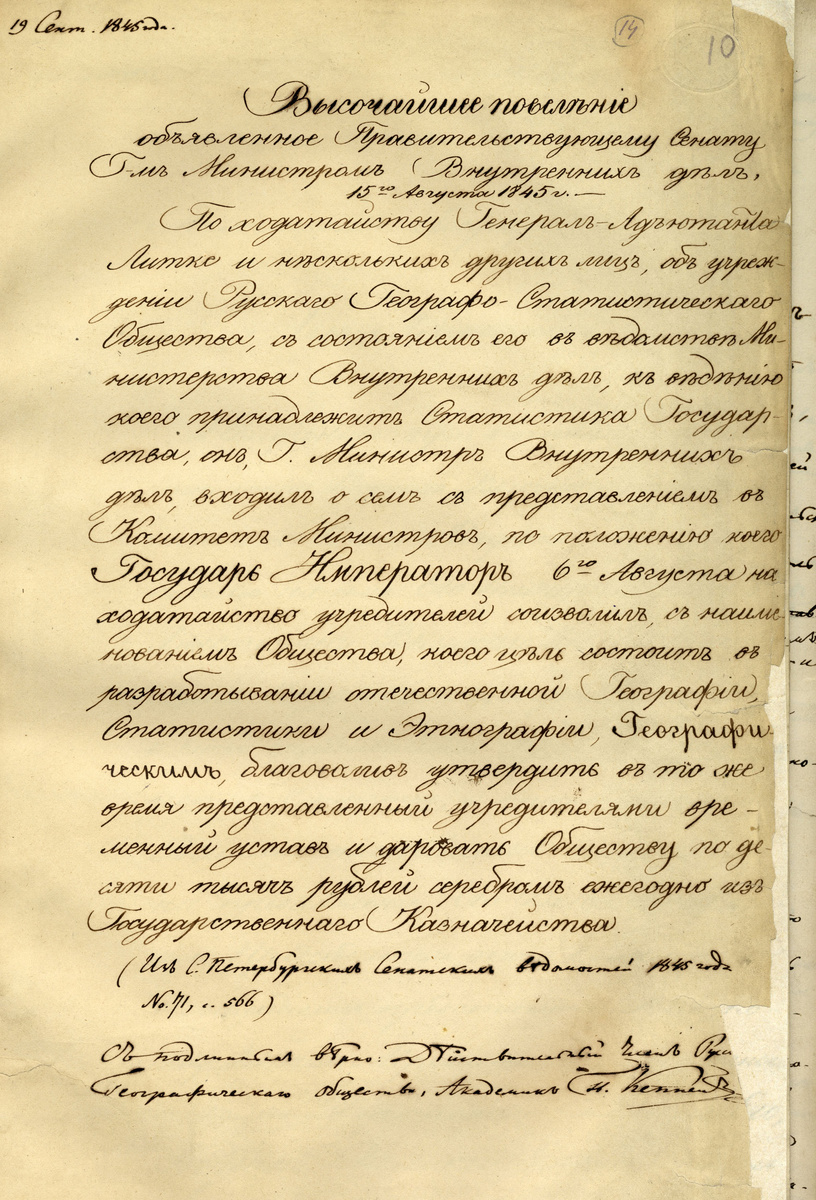 19 Сент. 1845 года.
14
10
Высочайшее повелѣніе
объявленное Правительствующему Сенату
Г-мъ Министромъ Внутреннихъ дѣлъ,
15го Августа 1845 г. —
По ходатайству Генералъ-Адъютанта
Литке и нѣсколькихъ другихъ лицъ, объ учреж-
деніи Русскаго Географо-Статистическаго
Общества, съ состояніемъ его въ вѣдомствѣ Ми-
нистерства Внутреннихъ дѣлъ, къ вѣдѣнію
коего принадлежитъ Статистика Государ-
ства, онъ, Г. Министръ Внутреннихъ
дѣлъ, входилъ о семъ съ представленіемъ въ
Комитетъ Министровъ, по положенію коего
Государь Императоръ 6го Августа на
ходатайство учредителей соизволилъ, съ наиме-
нованіемъ Общества, коего цѣль состоитъ въ
разработываніи отечественной Географіи,
Статистики и Этнографіи, Географи-
ческимъ, благоволивъ утвердить въ то же
время представленный учредителями вре-
менный уставъ и даровать Обществу по де-
сяти тысячъ рублей серебромъ ежегодно изъ
Государственнаго Казначейства.
(Изъ С. Петербургскихъ Сенатскихъ вѣдомостей 1845 года
No. 71, с. 566)
Съ подлиннымъ вѣрно: Дѣйствительный Членъ Русс
Географическаго общества, Академикъ П. Кеппенъ